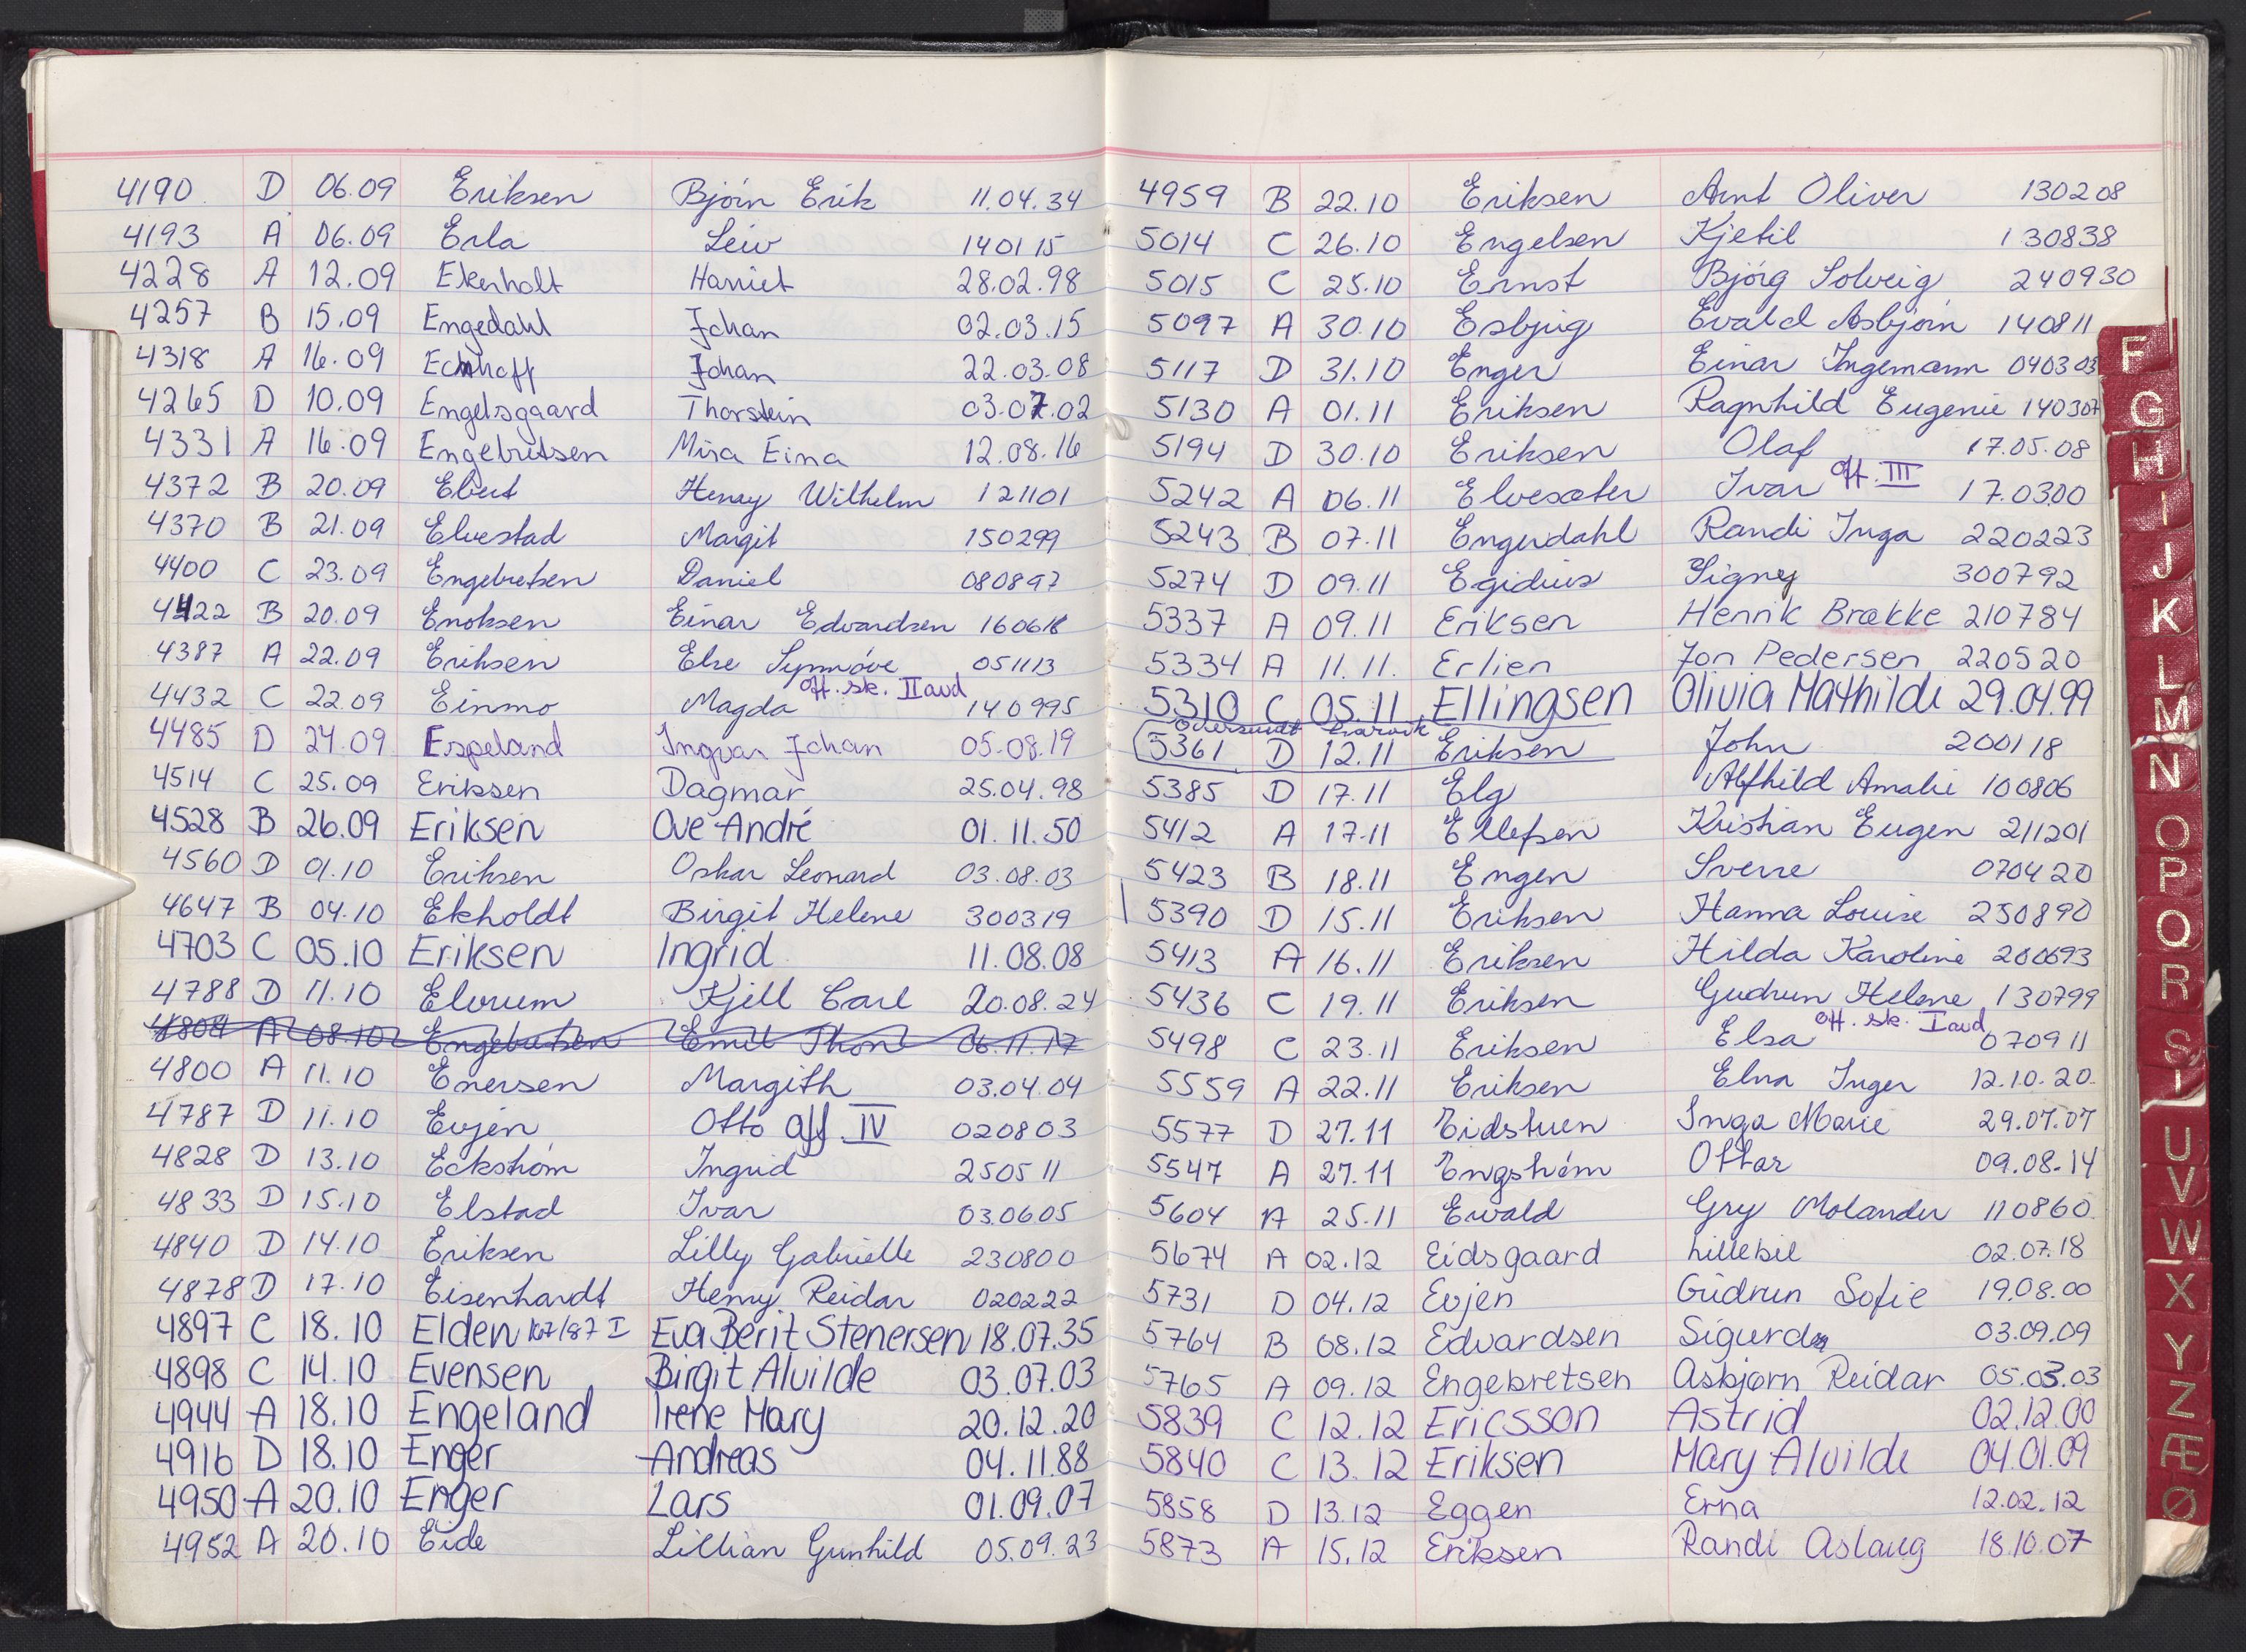 4190 D 06.09 Eriksen Bjørn Erik 11.04.34
4193 A 06.09 Erla Leiv 140115
4228 A 12.09 Ekenholt Harriet 28.02.98
4257 B 15.09 Engedahl Johan 02.03.15
4318 A 16.09 Johan 22.03.08
4265 D 10.09 Engelsgaard Thorstein 03.07.02
4331 A 16.09 Engebretsen Mira Eina 12.08.16
4372 B 20.09 Ebert Henry Wilhelm 121101
4370 B 21.09 Elvestad Margit 150299
4400 C 23.09 Engebretsen Daniel 080897
4422 B 20.09 Enoksen Einar Edvardsen 160618
4387 A 22.09 Eriksen Else Synnøve 051113
4432 C 22.09 Einmo Magda off. sk. II avd 140995
4485 D 24.09 Espeland Ingvar Johan 05.08.19
4514 C 25.09 Eriksen Dagmar 25.04.98
4528 B 26.09 Eriksen Ove André 01.11.50
4560 D 01.10 Eriksen Oskar Leonard 03.08.03
4647 B 04.10 Ekholdt Birgit Helene 300319
4703 C 05.10 Eriksen Ingrid 11.08.08
4788 D 11.10 Elvrum Kjell Carl 20.08.24
4804 A 08.10 Engebretsen Emil Thon 06.11.17
4800 A 11.10 Enersen Margith 03.04.04
4787 D 11.10 Evjen Otto off IV 020803
4828 D 13.10 Eckstrøm Ingrid 250511
4833 D 15.10 Elstad Ivar 03.06.05
4840 D 14.10 Eriksen Lilly Gabrielle 230800
4878 D 17.10 Eisenhardt Henry Reidar 020222
4897 C 18.10 Elden 167/87 I Eva Berit Stenersen 18.07.35
4898 C 14.10 Evensen Birgit Alvilde 03.07.03
4944 A 18.10 Engeland Irene Mary 20.12.20
4916 D 18.10 Enger Andreas 04.11.88
4950 A 20.10 Enger Lars 01.09.07
4952 A 20.10 Eide Lillian Gunhild 05.09.23
4959 B 22.10 Eriksen Arnt Oliver 130208
5014 C 26.10 Engelsen Kjetil 130838
5015 C 25.10 Ernst Bjørg Solveig 240930
5097 A 30.10 Esbjug Evald Asbjørn 140811
5117 D 31.10 Enger Einar Ingemann 040303
5130 A 01.11 Eriksen Ragnhild Eugenie 140307
5194 D 30.10 Eriksen Olaf 17.05.08
5242 A 06.11 Elvesæter Ivar off. III 17.0300
5243 B 07.11 Engerdahl Randi Inga 220223
5274 D 09.11 Egidius Signy 300792
5337 A 09.11 Eriksen Henrik Brække 210784
5334 A 11.11. Erlien Jon Pedersen 220520
5310 C 05.11 Ellingsen Olivia Mathilde 29.04.99
oversendt Larvik
5361 D 12.11 Eriksen John 200118
5385 D 17.11 Elg Alfhild Amalie 100806
5412 A 17.11 Ellefsen Kristian Eugen 211201
5423 B 18.11 Engen Sverre 070420
5390 D 15.11 Eriksen Hanna Louise 250890
5413 A 16.11 Eriksen Hilda Karoline 200693
5436 C 19.11 Eriksen Gudrun Helene 130799
5498 C 23.11 Eriksen Elsa off. sk. I avd 070911
5559 A 22.11 Eriksen Elna Inger 12.10.20
5577 D 27.11 Eidstuen Inga Marie 29.07.07
5547 A 27.11 Engstrøm Ottar 09.08.14
5604 A 25.11 Ewald Gry Molander 110860
5674 A 02.12 Eidsgaard Lillebil 02.07.18
5731 D 04.12 Evjen Gudrun Sofie 19.08.00
5764 B 08.12 Edvardsen Sigurd 03.09.09
5765 A 09.12 Engebretsen Asbjørn Reidar 05.03.03
5839 C 12.12 Ericsson Astrid 02.12.00
5840 C 13.12 Eriksen Mary Alvilde 04.01.09
5858 D 13.12 Eggen Erna 12.02.12
5873 A 15.12 Eriksen Randi Aslaug 18.10.07
F
G
H
I
J
K
L
M
N
O
P
Q
R
S
T
U
V
W
X
Y
Z
Æ
Ø